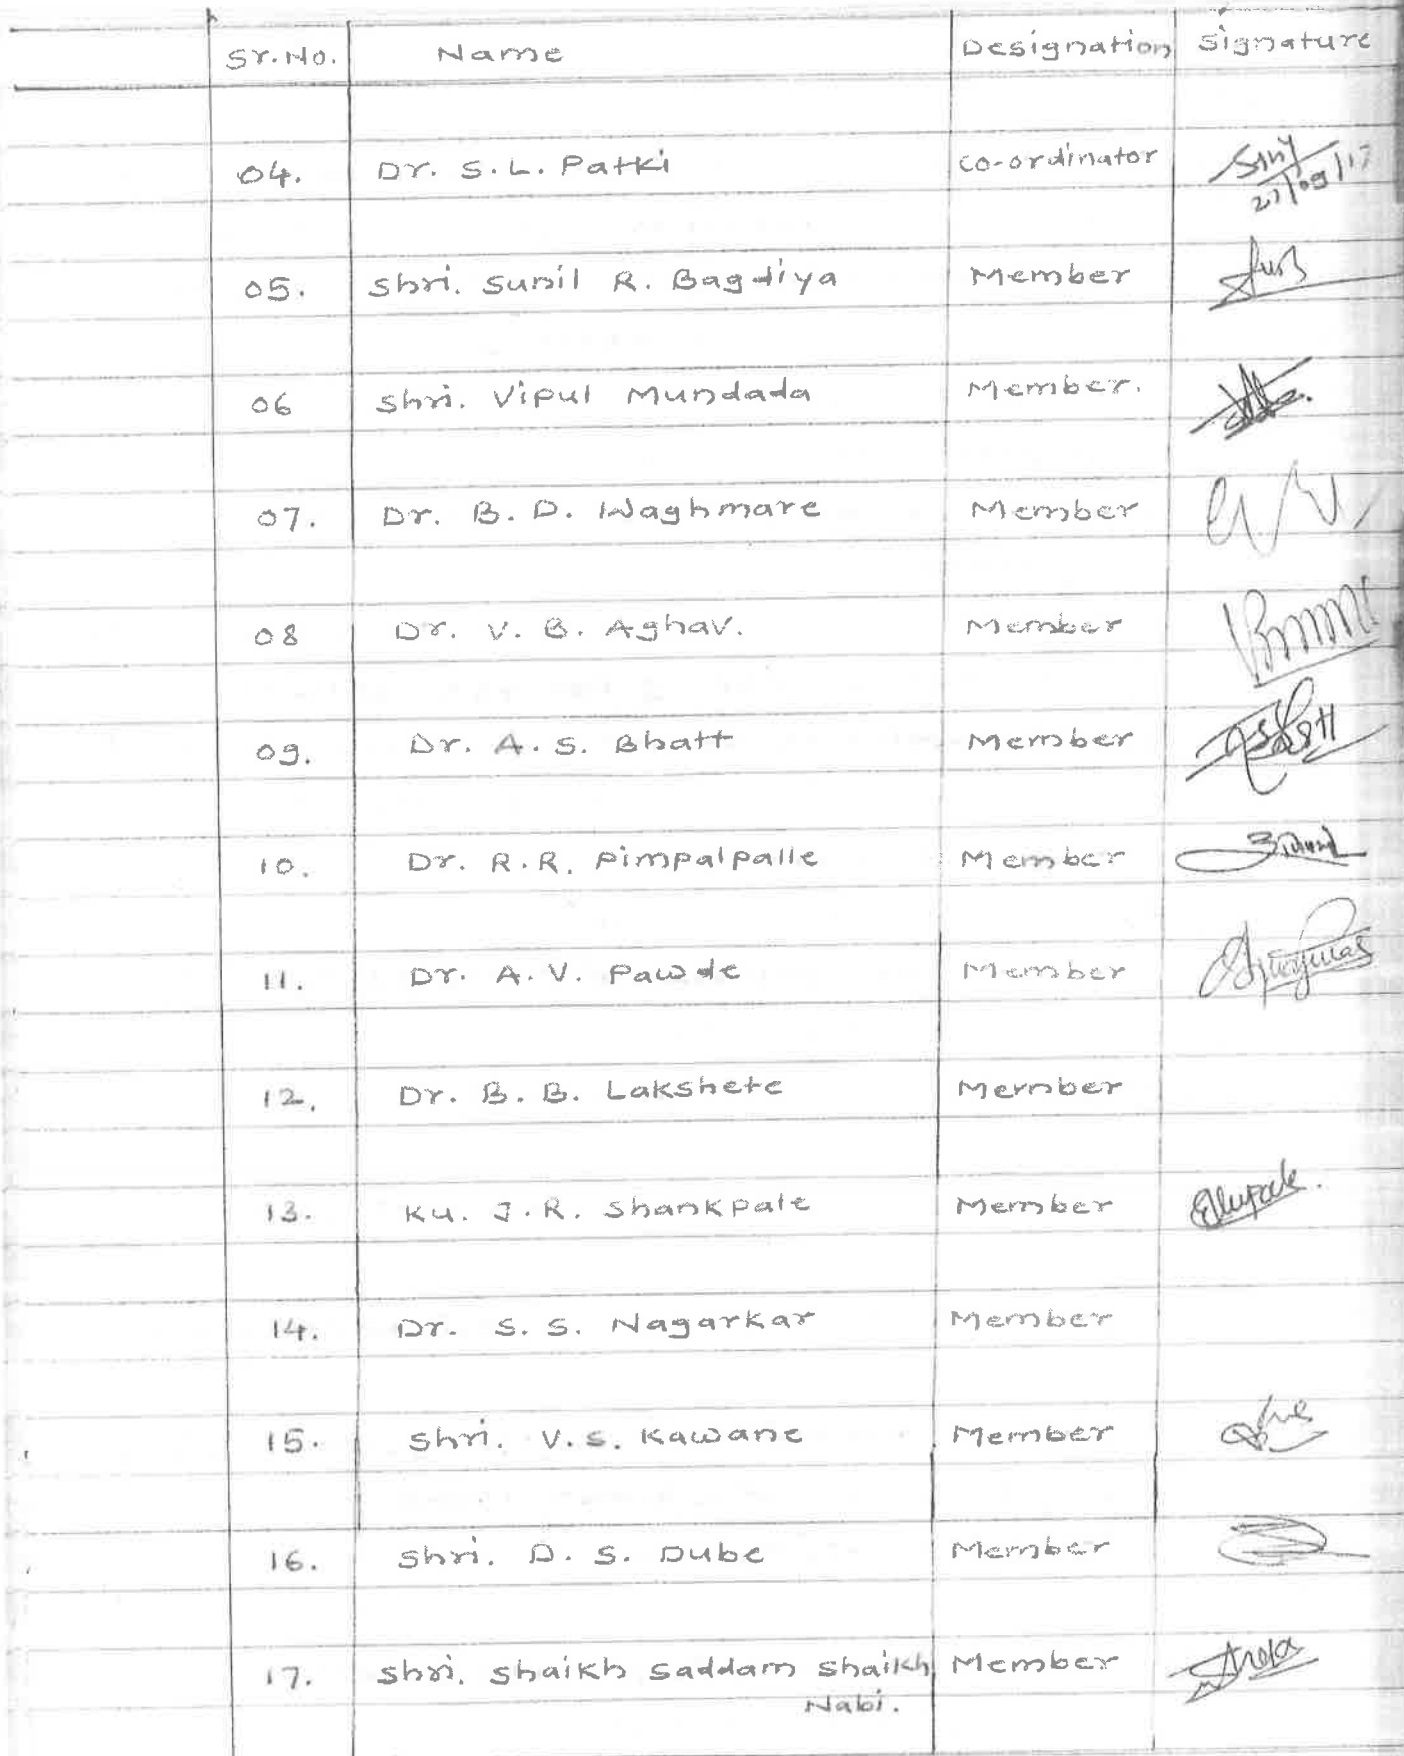 Sr.No. Name Designation Signature
04. Dr. S.L. Patki Co-ordinator
05. Shri. Sunil R. Bagdiya Member
06 Shri. Vipul Mundada Member.
07. Dr. B. D. Waghmare Member
08 Dr. V. B. Aghav. Member
09. Dr. A. S. Bhatt Member
10. Dr. R.R. Pimpalpalle Member
11. Dr. A. V. Pawde Member
12. Dr. B. B. Lakshete Member
13. Ku. J. R. Shankpale Member
14. Dr. S. S. Nagarkar Member
15. Shri. V. S. Kawane Member
16. Shri. D. S. Dube Member
17. Shri. Shaikh Saddam Shaikh Member
Nabi.